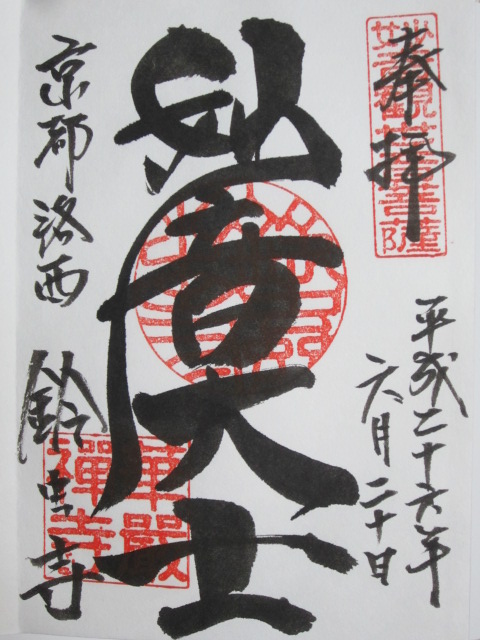 奉拝
妙音觀世音菩薩
平成二十六年
六月二十日
妙音大士
京都洛西
鈴虫寺
華嚴
禪寺